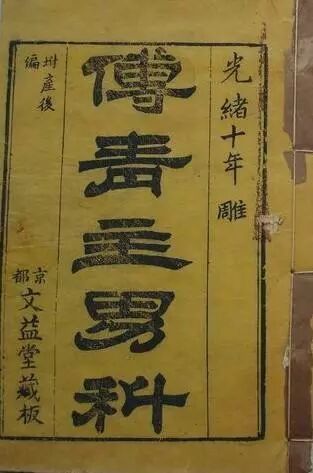 光緒十年雕
傅青主男科
坿產後編
京都文益堂藏板